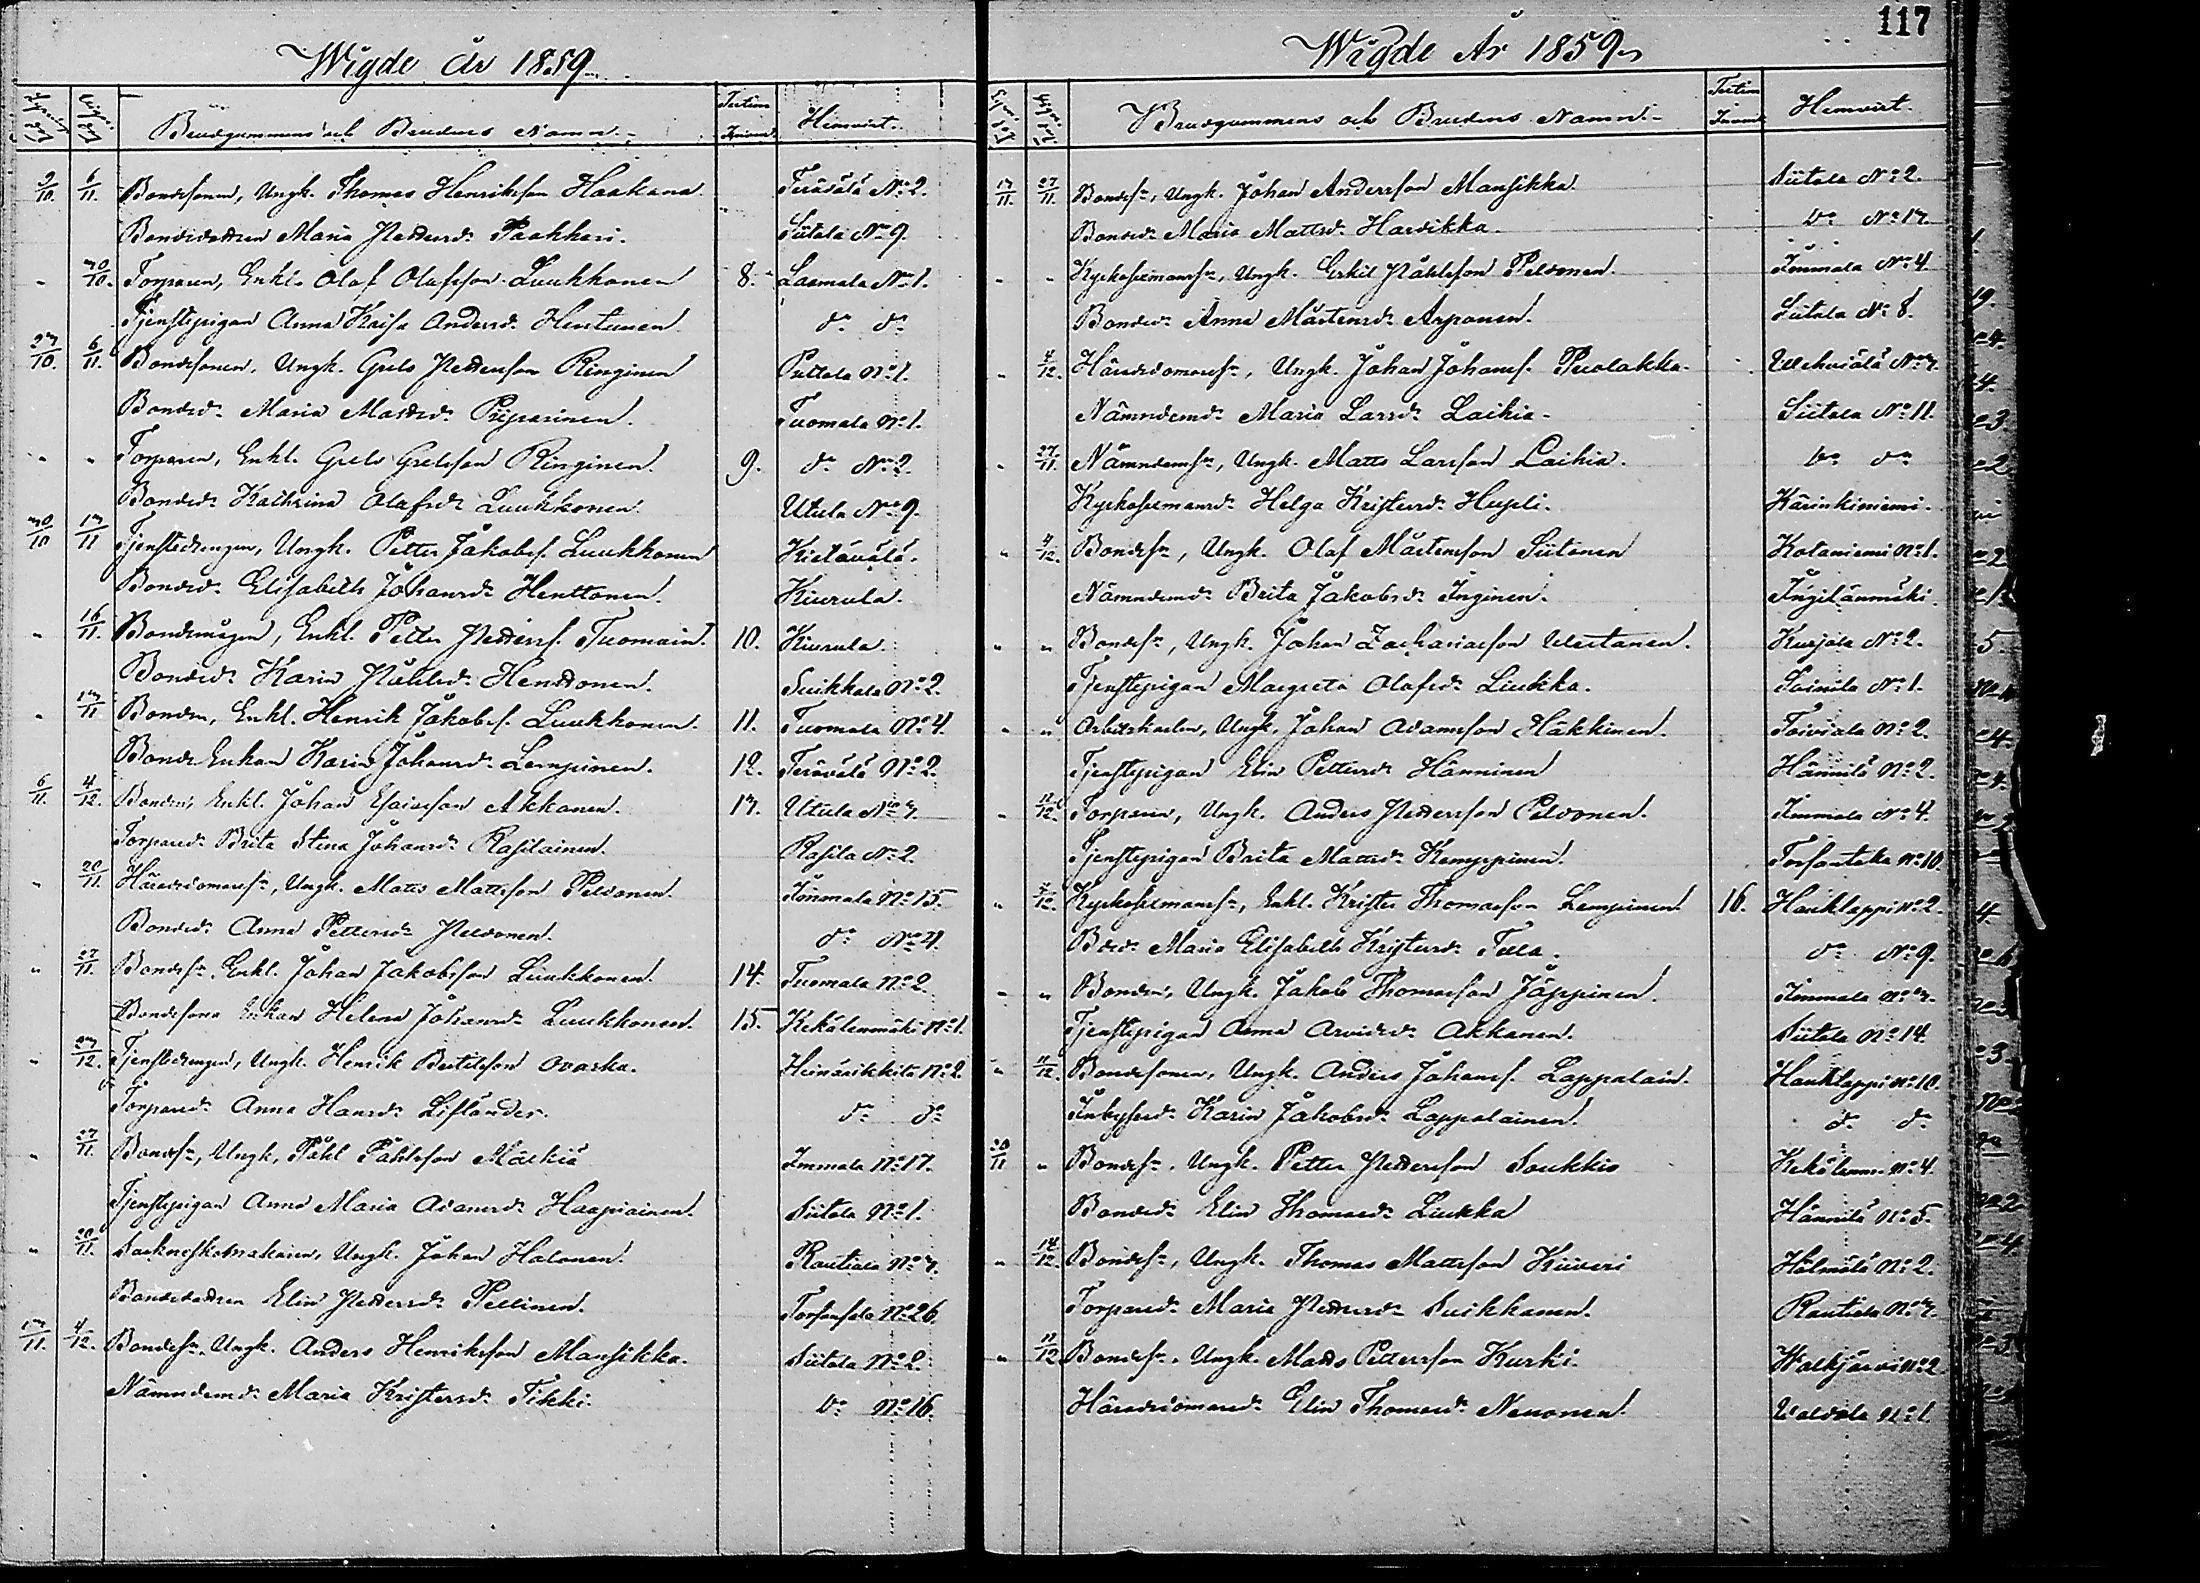 117
Wigde år 1859.
Brudgummens och Brudens Namn.
Hemvist.
9/10. 6/11. Bondesonen, Ungk. Thomas Henriksson Haakana Teräválä No 2.
Bondedottren Maria Pettersdr Paakkari. Siitola No 9.
" 30/10. Torparen, Enkl. Olof Olofsson Luukkonen 8. Laamala No 1.
Tjenstepigan Anna Kaisa Andersdr Hentunen do do
23/10. 6/11. Bondesonen, Ungk. Grels Pettersson Ringinen Puttola No 1.
Bonded. Maria Mattsd. Pyyparinen. Tuomala No 1.
" " Torparen, Enkl. Grels Grelsson Ringinen. 9. do No 2.
Bonded. Kathrina Olofsd. Luukkonen. Utula No 9.
30/10 13/11 Tjenstedrengen, Ungk. Petter Jakobss. Luukkonen Kietävälä.
Bonded. Elisabeth Johansd. Henttonen. Kiurula.
" 16/11. Bondemågen, Enkl. Petter Petterss. Tuomain. 10. Kiurula.
Bonded. Karin Påhlsd. Henttonen. Suikkala No 2.
" 13/11. Bonden, Enkl. Henrik Jakobss. Luukkonen. 11. Tuomala No 4.
Bonde Enkan Karin Johansd. Lempinen. 12. Terävälä No 2.
6/11. 4/12. Bonden, Enkl. Johan Esaiasson Akkanen. 13. Utula No 3.
Torpared. Brita Stina Johansd. Rasilainen. Rasila No 2.
" 20/11. Häradsdomaress., Ungk. Matts Mattsson Pelvonen. Immala No 15.
Bonded. Anna Pettersd. Pelvonen. do No 4.
" 27/11. Bondesn, Enkl. Johan Jakobsson Luukkonen. 14. Tuomala No 2.
Bondesons Enkan Helena Johansd. Luukkonen. 15. Kekälenmäki No 1.
" 27/12. Tjenstedrengen, Ungk. Henrik Bertilsson Ovaska. Heinärikkilä No 2.
Torpared. Anna Hansd. Lifländer. do do
" 27/11. Bondesn, Ungk. Påhl Påhlsson Mälkiä Immala No 17.
Tjenstepigan Anna Maria Adamsd. Haapiainen. Siitola No 1.
" 20/11. Ungk. Johan Halonen. Rautiala No 3.
Bondedottren Elin Pettersd. Pellinen. Torsansalo No 26.
13/11. 4/12. Bondesn, Ungk. Anders Henriksson Mansikka. Siitola No 2.
Nämndemd. Maria Kristersd. Tikki. do No 16.
Wigde År 1859.
Brudgummens och Brudens Namn.
Hemvist.
13/11. 27/11. Bondesn, Ungk. Johan Andersson Mansikka. Siitola No 2.
Bonded. Maria Mattsd. Harvikka. do No 17.
" " Kyrkosexmanssn, Ungk. Erkil Påhlsson Pelvonen. Immala No 4.
Bonded. Anna Mårtensd. Arponen. Siitola No 8.
" 4/12. Häradsdomaresn, Ungk. Johan Johanss. Puolakka.
Nämndemd. Maria Larsd. Laihia. Siitola No 11.
" 27/11. Nämndemsn, Ungk. Matts Larsson Laihia. do do
Kyrkosexmansd. Helga Kristersd. Hupli. Kärinkiniemi.
" 4/12. Bondesn, Ungk. Olof Mårtensson Siitonen Kotaniemi No 1.
Nämndemd. Brita Jakobsd. Inginen. Ingilänmäki.
" " Bondesn, Ungk. Johan Zachariasson Uertanen. Kurjala No 2.
Tjenstepigan Margreta Olofsd. Liukka. Soinila No 1.
" " Arbetskarlen, Ungk. Johan Adamsson Häkkinen. Toiviala No 2.
Tjenstepigan Elin Pettersd. Hänninen Hännilä No 2.
" 11/12. Torparen, Ungk. Anders Pettersson Pelvonen. Immala No 4.
Tjenstepigan Brita Mattsd. Kemppinen. No 10.
" 4/12. Kyrkosexmanssn, Enkl. Krister Thomasson Lempinen. 16. Hauklappi No 2.
Bded. Maria Elisabeth Kristersd. Tula. do No 9.
" " Bonden, Ungk. Jakob Thomasson Jäppinen. Immala No 3.
Tjenstepigan Anna Arvidsd. Akkanen. Siitola No 14.
" 11/12. Bondesonen, Ungk. Anders Johanss. Lappalain. Hauklappi No 10.
Inhysesd. Karin Jakobsd. Lappalainen. do do
20/11 " Bondesn, Ungk. Petter Pettersson Soukkio Kekälenm. No 4.
Bonded. Elin Thomasd. Liukka Hännilä No 5.
" 14/12. Bondesn, Ungk. Thomas Mattsson Kiiveri Hälmälä No 2.
Torpared. Maria Pettersd. Suikkanen. Rautiala No 3.
" 11/12 Bondesn, Ungk. Matts Pettersson Kurki. Walkjärvi No 2.
Häradsdomared. Elin Thomasd. Neuonen. No 1